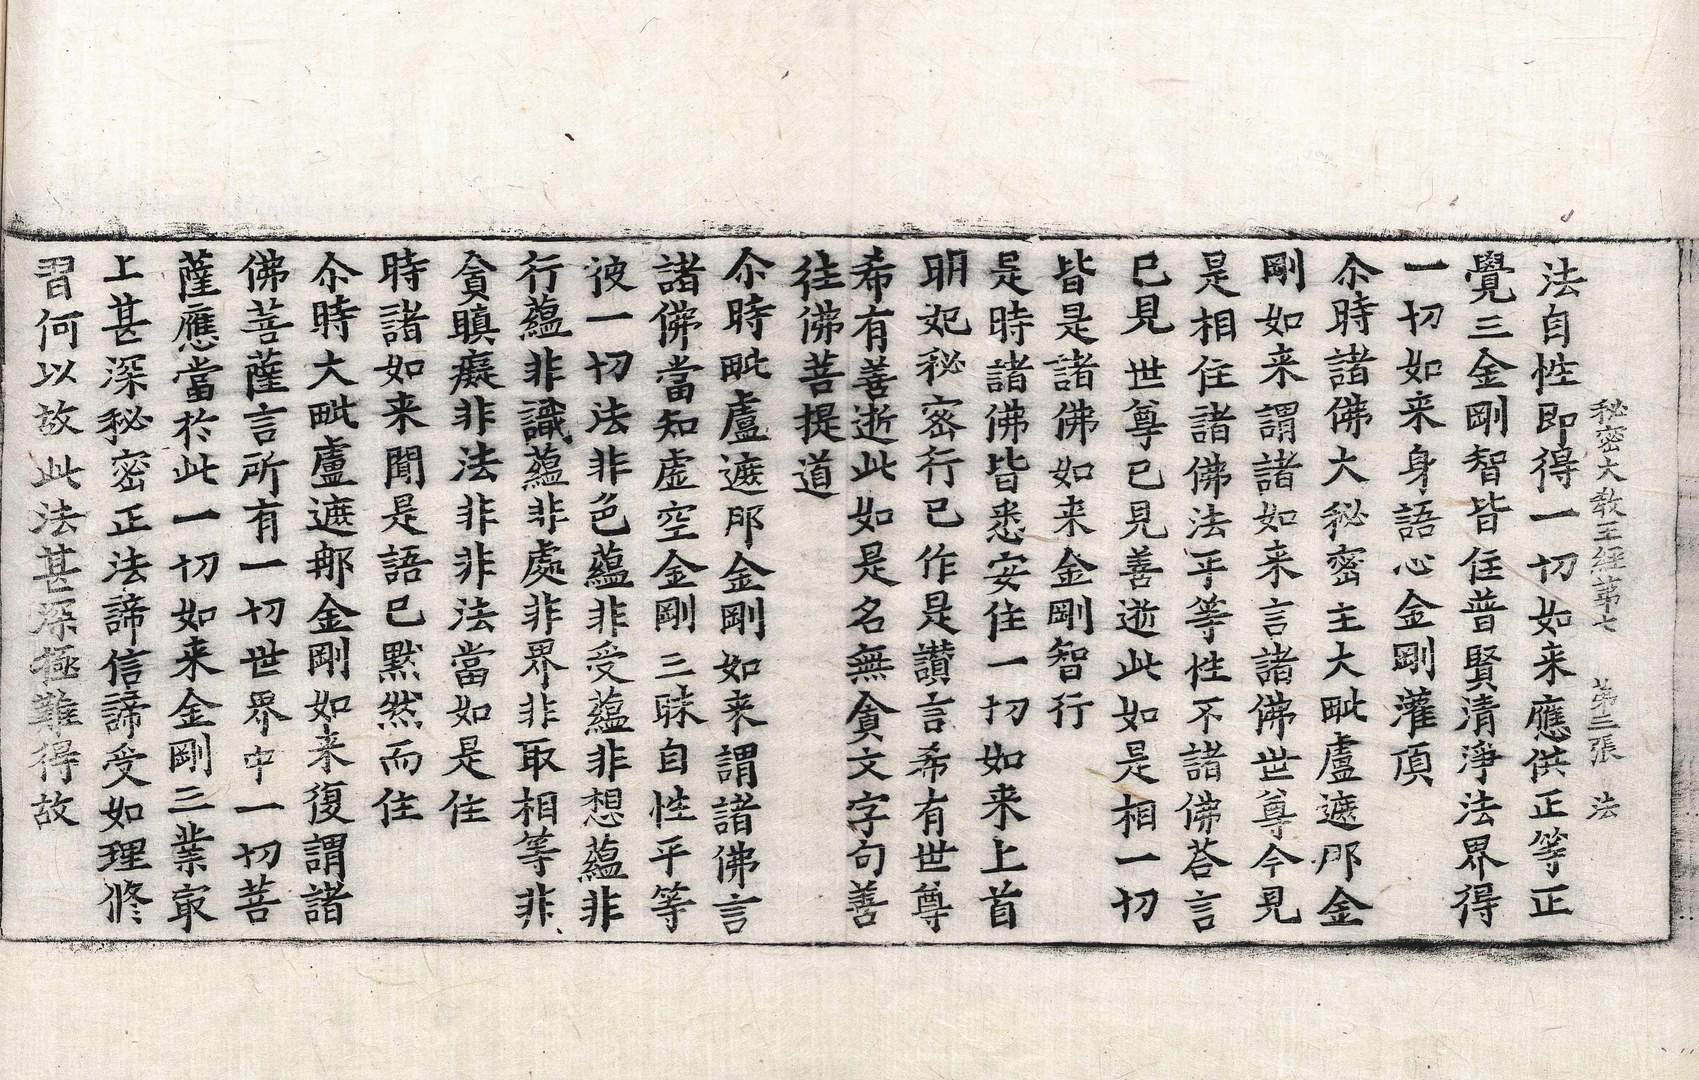 秘密大教王經第七　第三張　法
法自性即得一切如来應供正等正
覺三金剛智皆住普賢清淨法界得
一切如来身語心金剛灌頂
尒時諸佛大秘密主大毗盧遮那金
剛如来謂諸如来言諸佛世尊今見
是相住諸佛法平等性不諸佛荅言
已見世尊已見善逝此如是相一切
皆是諸佛如来金剛智行
是時諸佛皆悉安住一切如来上首
明妃秘密行已作是讃言希有世尊
希有善逝此如是名無貪文字句善
往佛菩提道
尒時毗盧遮那金剛如来謂諸佛言
諸佛當知虛空金剛三昧自性平等
彼一切法非色蘊非受蘊非想蘊非
行蘊非識蘊非處非界非取相等非
貪瞋癡非法非非法當如是住
時諸如来聞是語已默然而住
尒時大毗盧遮那金剛如来復謂諸
佛菩薩言所有一切世界中一切菩
薩應當於此一切如来金剛三業㝡
上甚深秘密正法諦信諦受如理修
習何以故此法甚深極難得故